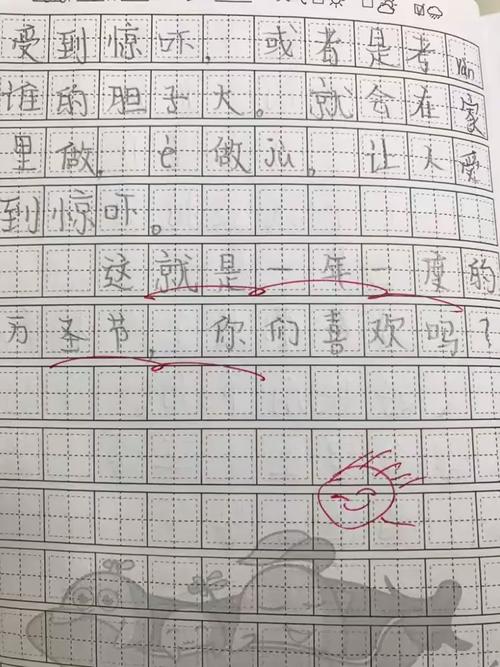 受到惊吓，或者是考yàn
谁的胆子大。就会在家
里做，è做jù。让人受
到惊吓。
这就是一年一度的
万圣节，你们喜欢吗？